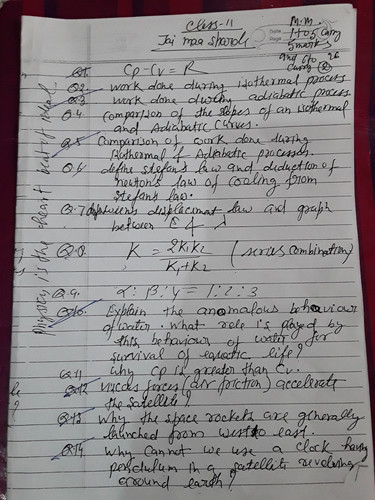 Class-11
Jai maa Sharde
M.M.
1 to 5 carry
5 marks
Q1. Cp-Cv = R
Q2. work done during isothermal process
Q.3 work done during adiabatic process
Q.4 Comparison of the slopes of an isothermal
and Adiabatic Curves.
Q.5 Comparison of work done during
Isothermal & Adiabatic processes.
Q.6 define stefan's law and deduction of
newton's law of cooling from
stefan's law.
Q.7 displacement law and graph
between E & λ
Q.8. K = 2K1K2 / K1+K2 (series combination)
Q.9. α : β : γ = 1 : 2 : 3
Q.10. Explain the anomalous behaviour
of water. What role is played by
this behaviour of water for
survival of aquatic life?
Q.11 why Cp is greater than Cv.
Q.12 viscous forces (air friction) accelerate
the satellite?
Q.13 Why the space rockets are generally
launched from west to east.
Q.14. Why cannot we use a clock having
pendulum in a satellite revolving
around earth?
Physics is the heart beat of